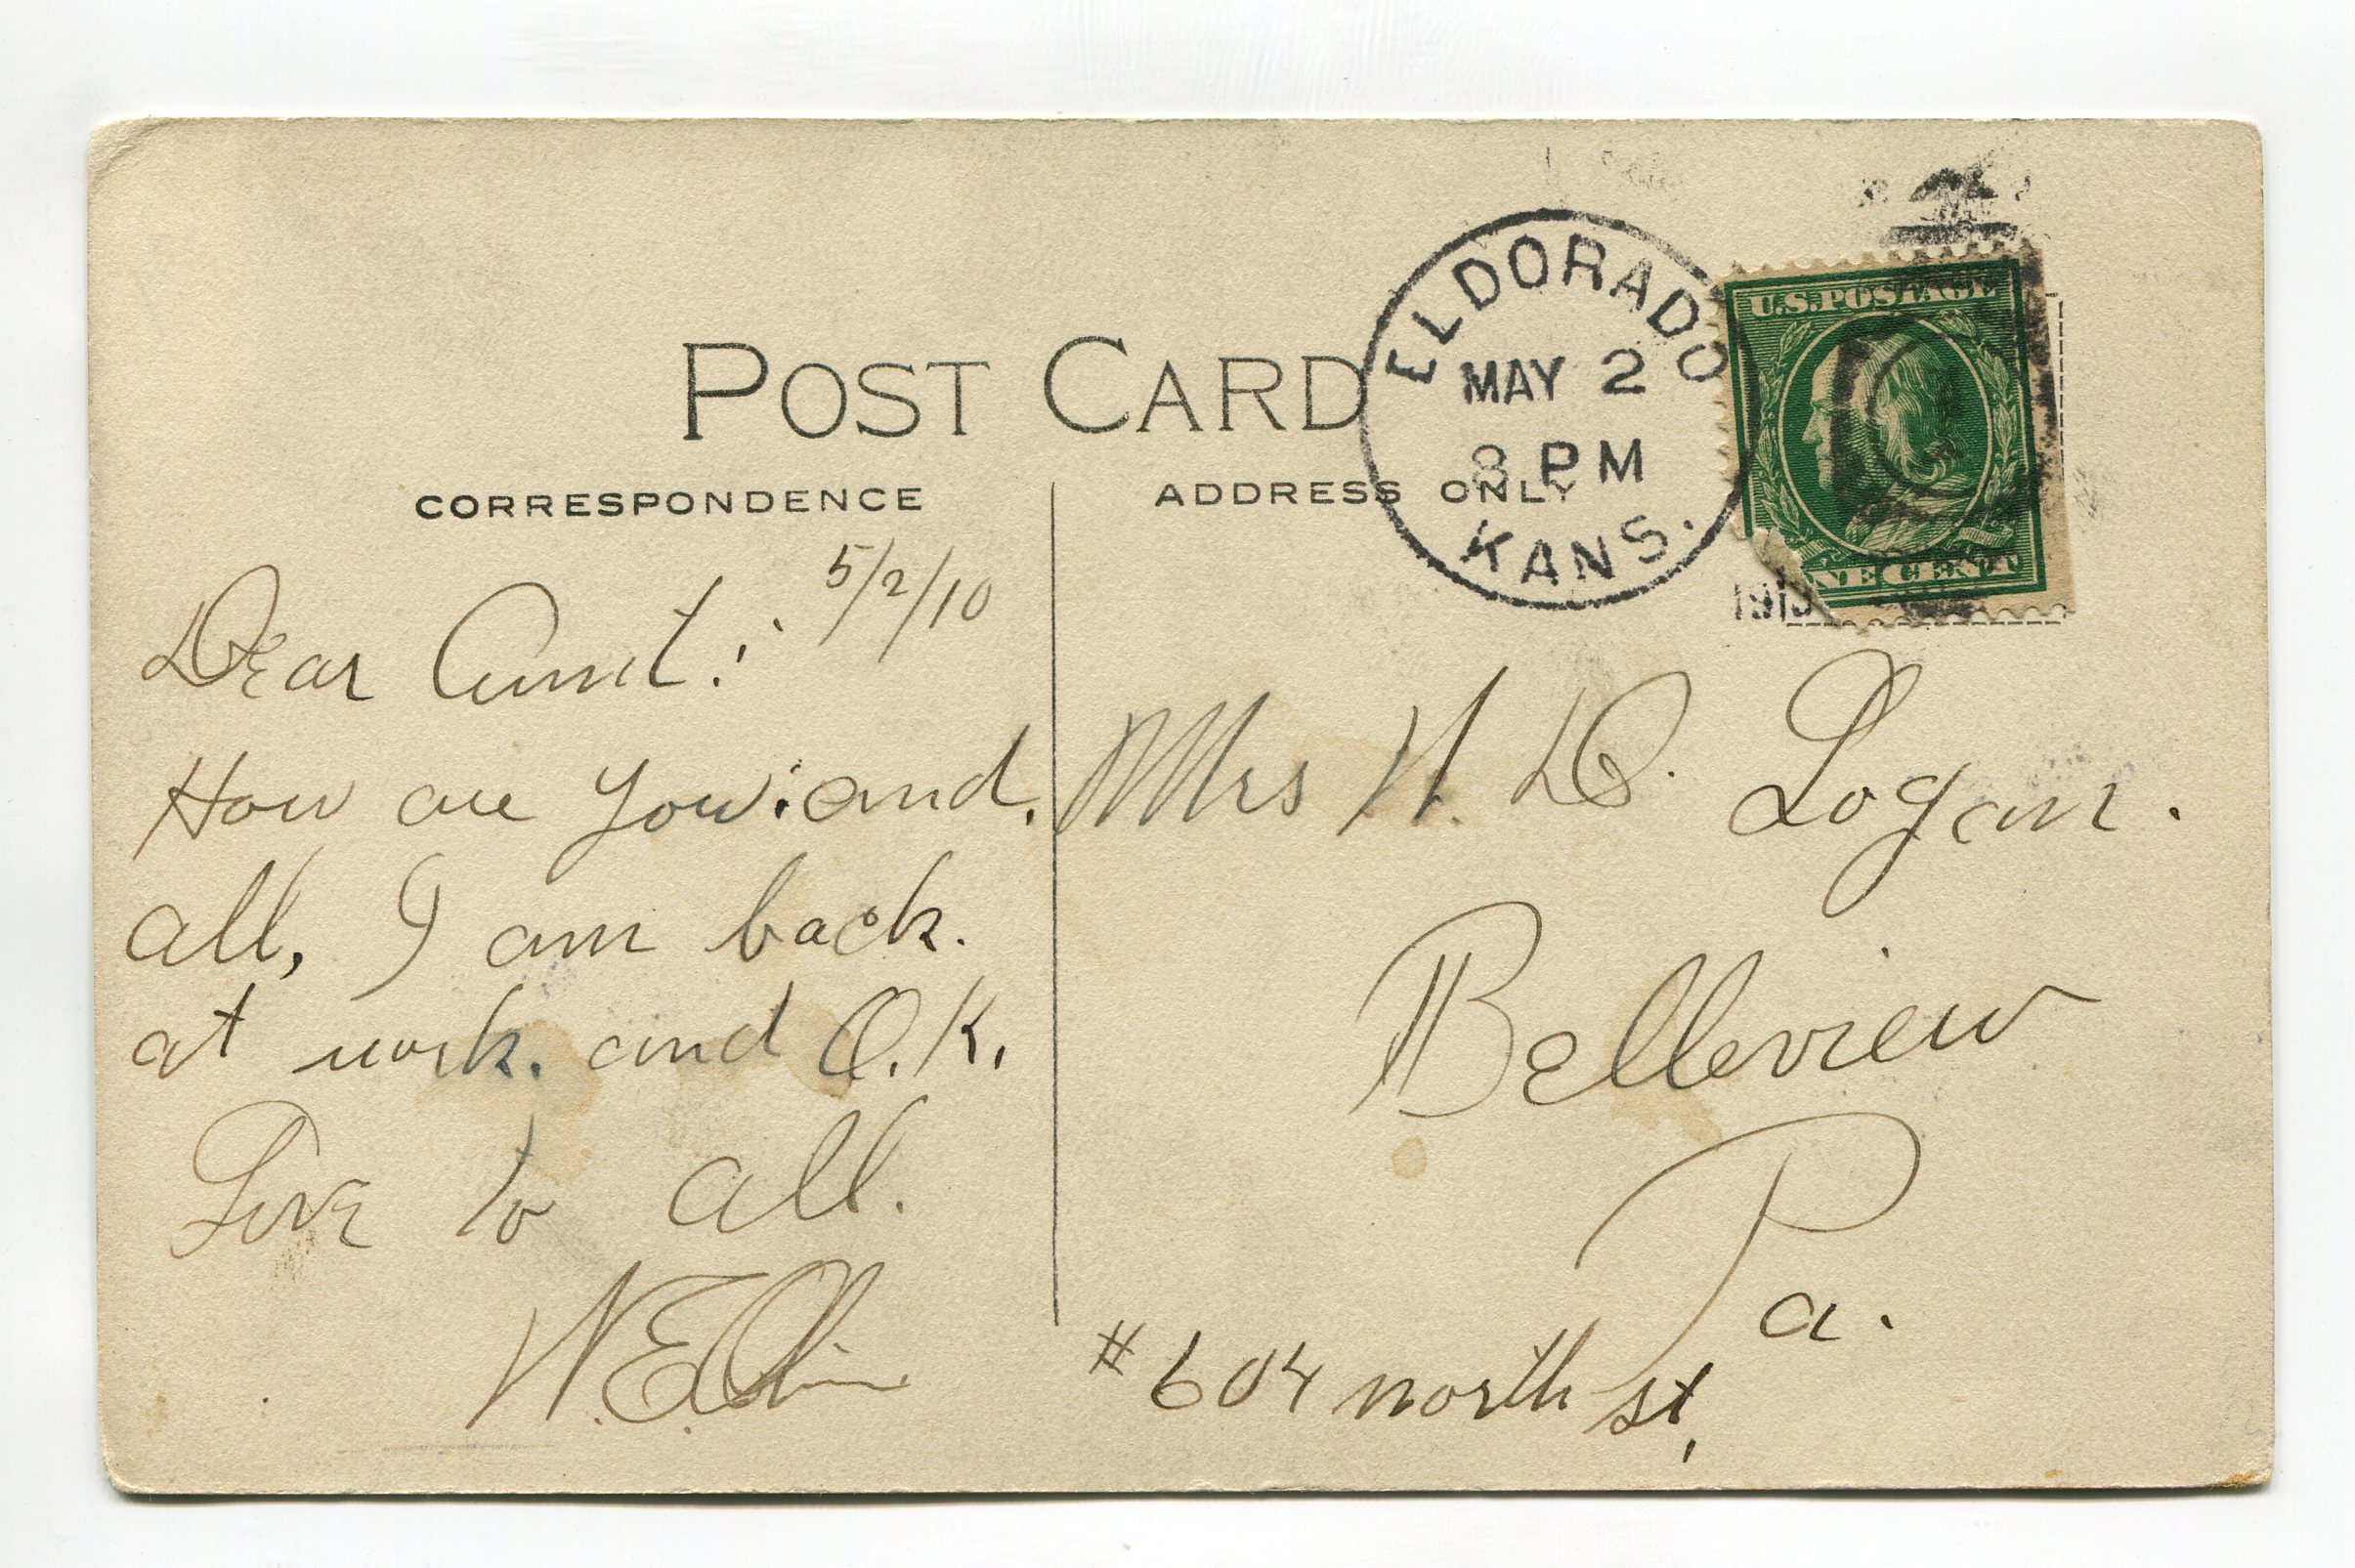 POST CARD
CORRESPONDENCE
ADDRESS ONLY
ELDORADO
MAY 2
8 PM
KANS.
1910
U.S. POSTAGE
NE CENT
5/2/10
Dear Aunt:
How are you and.
all, I am back.
at work. and O.K.
Love to all.
W.E.
Mrs D. Logan.
Belleview
Pa.
#604 north st,